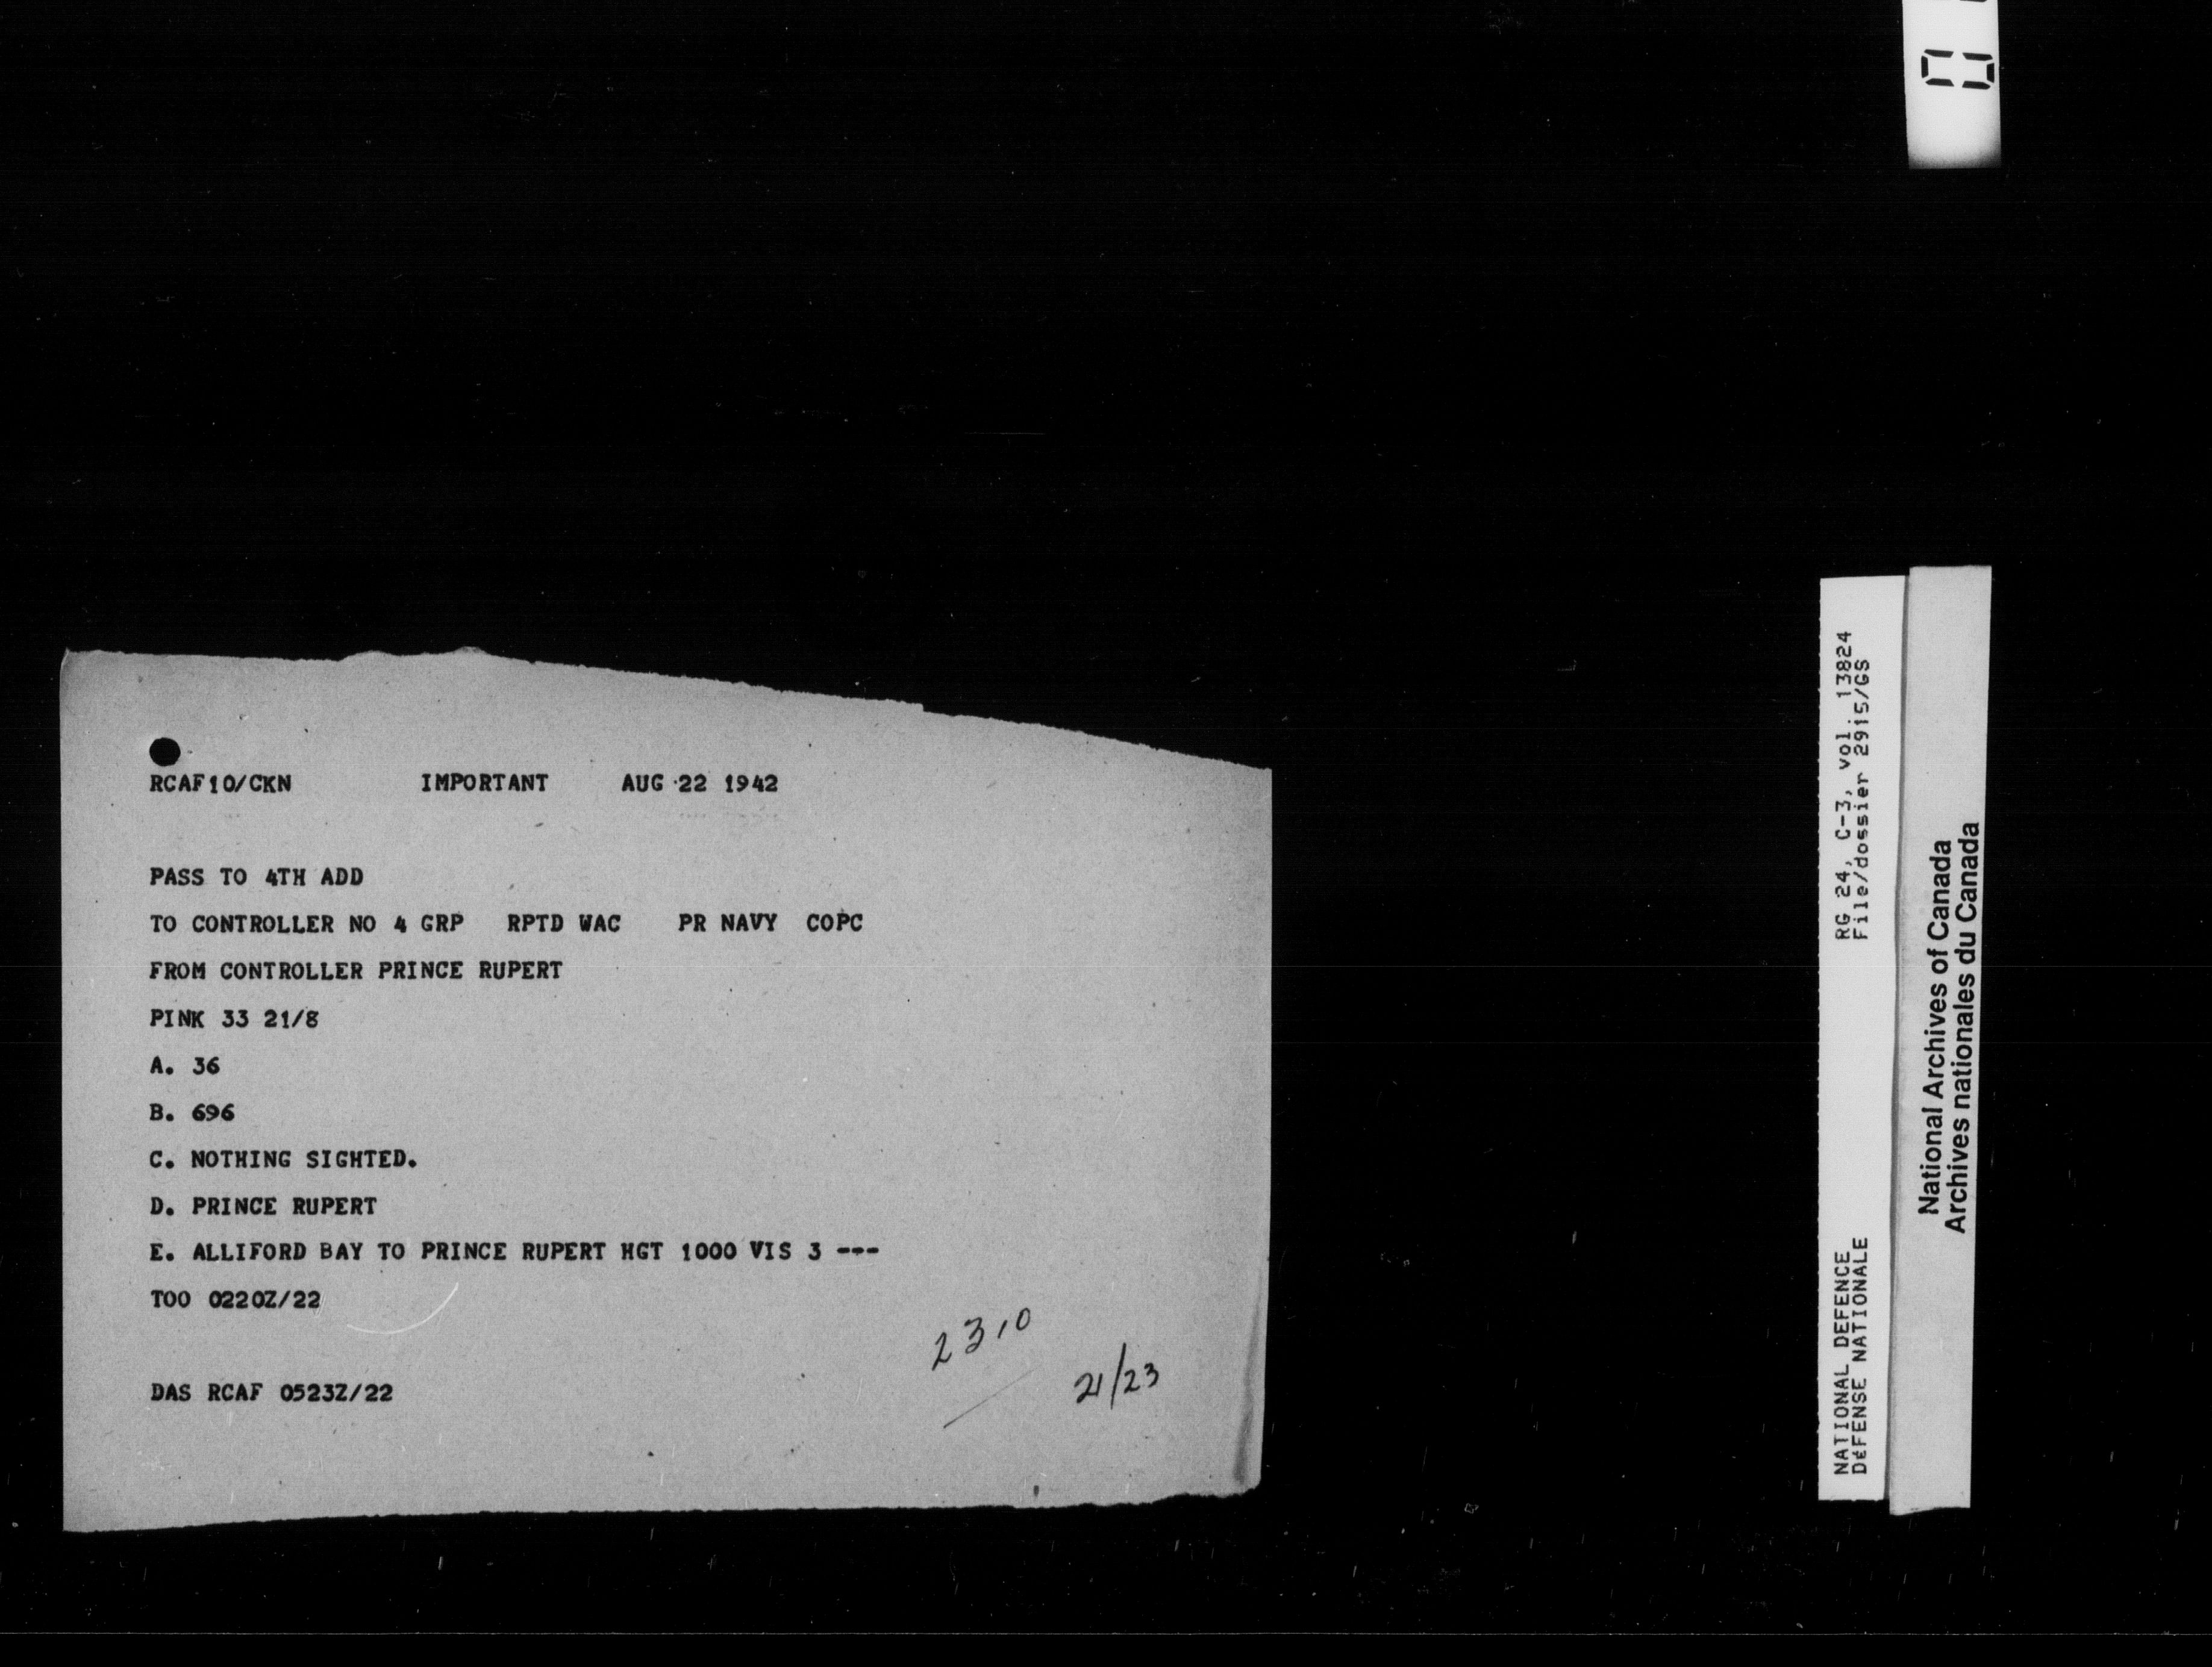 RCAF10/CKN IMPORTANT AUG 22 1942
PASS TO 4TH ADD
TO CONTROLLER NO 4 GRP RPTD WAC PR NAVY COPC
FROM CONTROLLER PRINCE RUPERT
PINK 33 21/8
A. 36
B. 696
C. NOTHING SIGHTED.
D. PRINCE RUPERT
E. ALLIFORD BAY TO PRINCE RUPERT HGT 1000 VIS 3 ---
TOO 0220Z/22
2310
21/23
DAS RCAF 0523Z/22
RG 24, C-3, vol. 13824
File/dossier 2915/GS
NATIONAL DEFENCE
DéFENSE NATIONALE
National Archives of Canada
Archives nationales du Canada